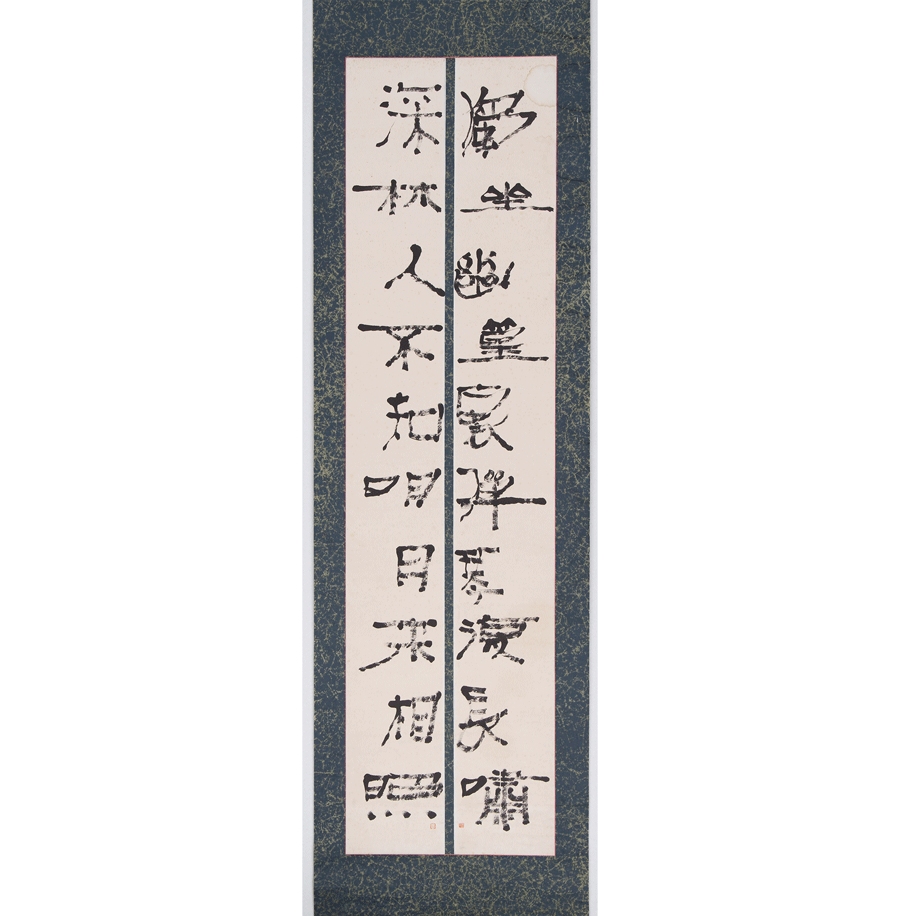 獨坐幽篁裏彈琴復長嘯
深林人不知明月来相照